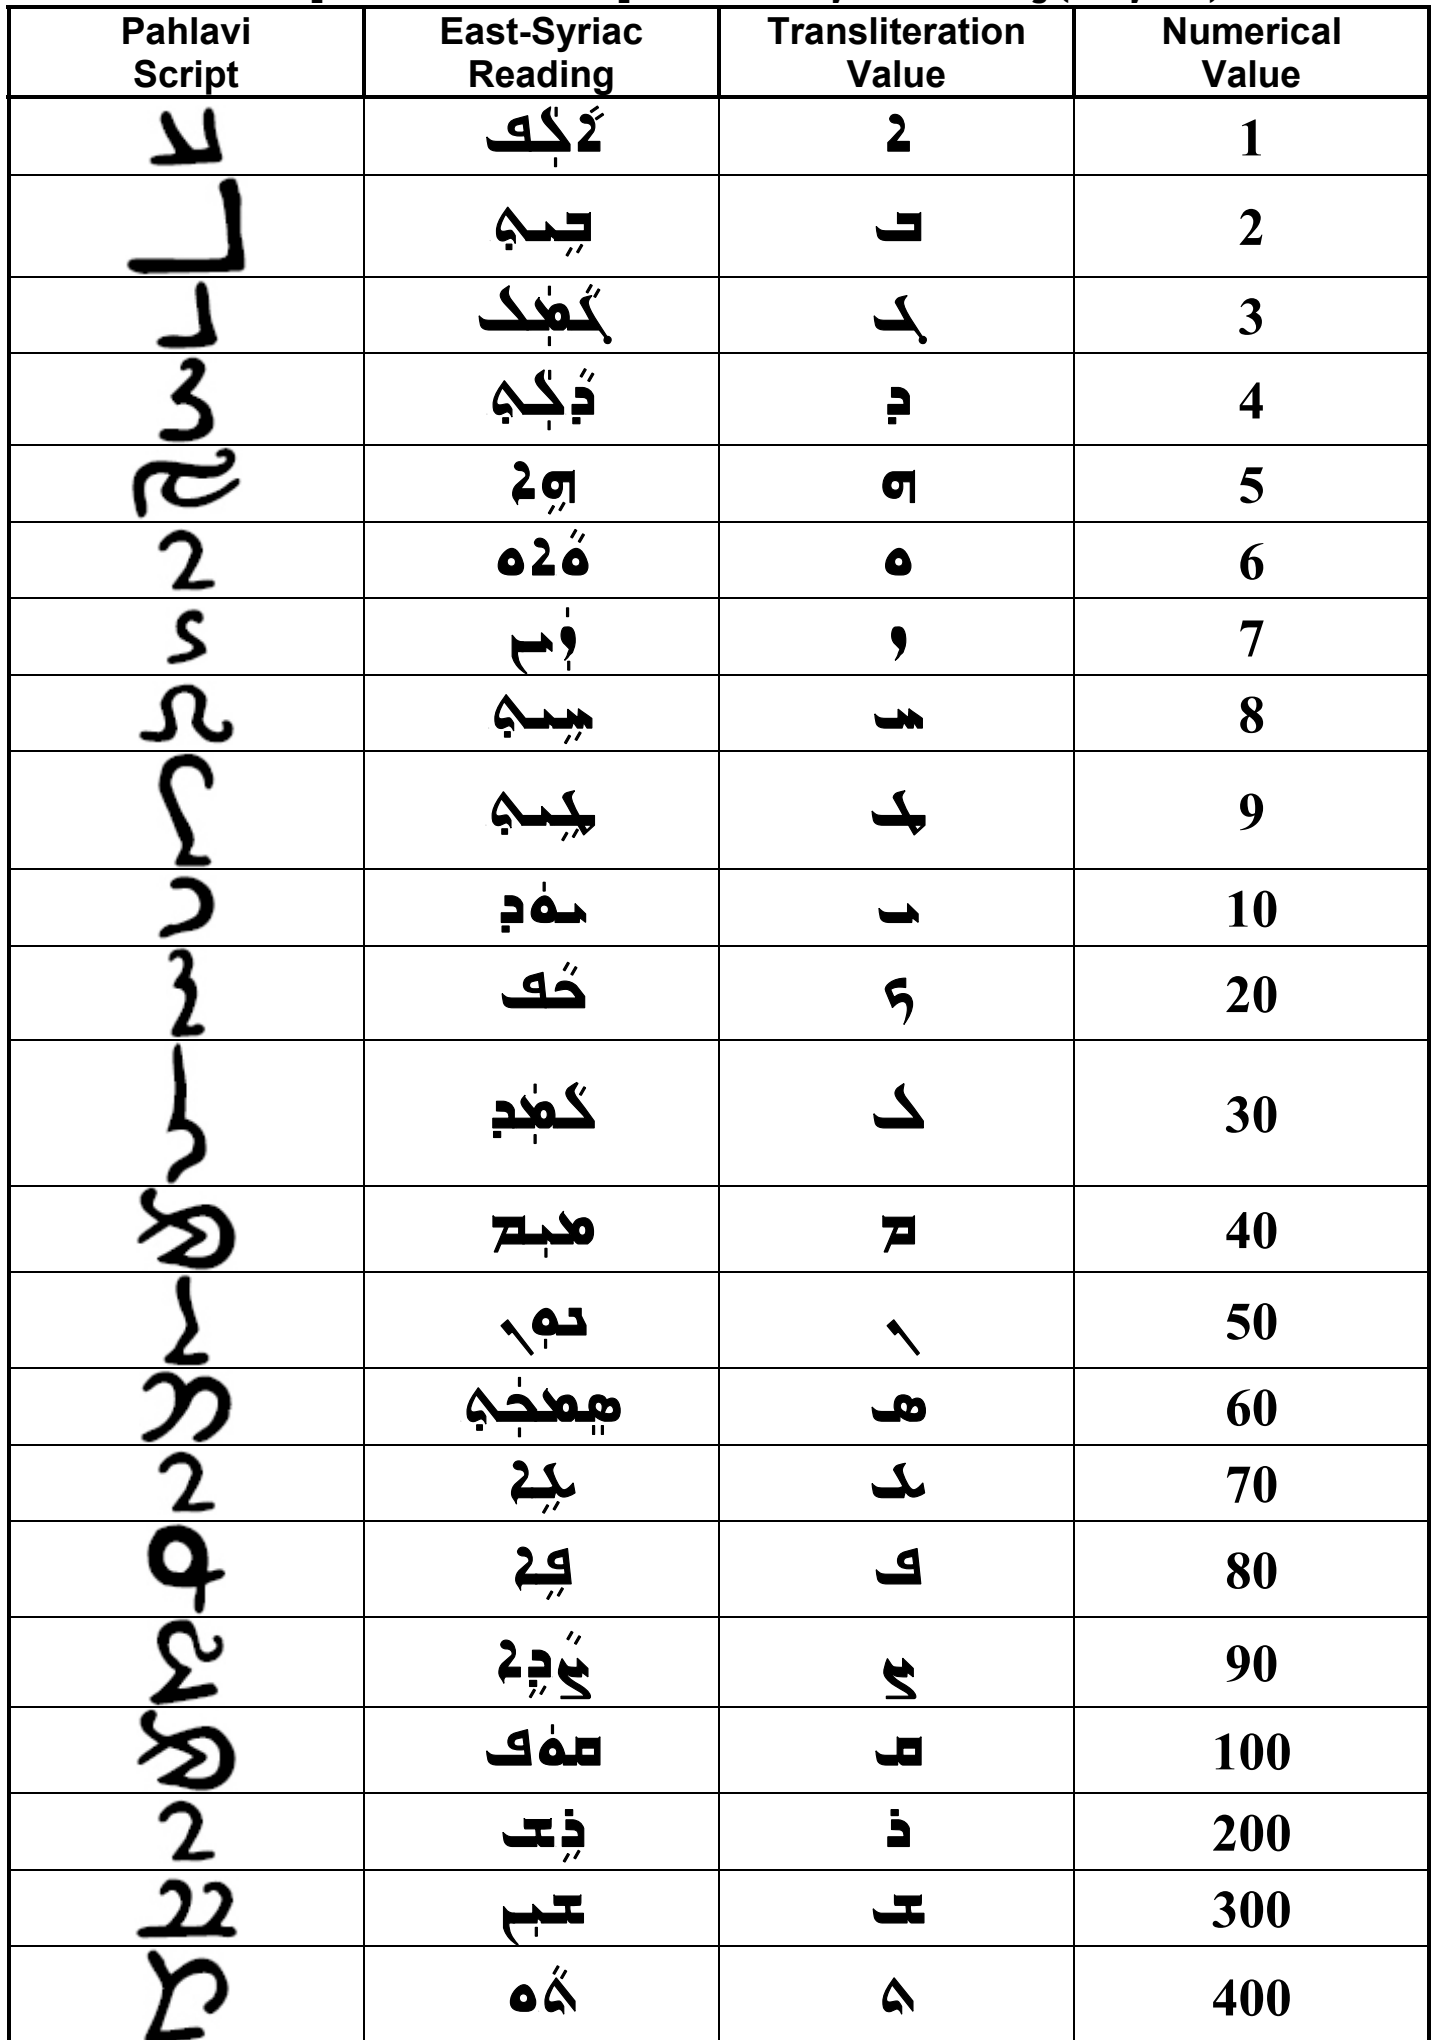 Pahlavi Script East-Syriac Reading Transliteration Value Numerical Value
ܐܵܠܲܦ ܐ 1
ܒܹܝܬ݂ ܒ 2
ܓܵܡܲܠ ܓ 3
ܕܵܠܲܬ݂ ܕ 4
ܗܹܐ ܗ 5
ܘܵܐܘ ܘ 6
ܙܲܝܢ ܙ 7
ܚܹܝܬ݂ ܚ 8
ܛܹܝܬ݂ ܛ 9
ܝܘܿܕ ܝ 10
ܟܵܦ ܟ 20
ܠܵܡܲܕ ܠ 30
ܡܝܼܡ ܡ 40
ܢܘܼܢ ܢ 50
ܣܸܡܟܲܬ݂ ܣ 60
ܥܹܐ ܥ 70
ܦܹܐ ܦ 80
ܨܵܕܹܐ ܨ 90
ܩܘܿܦ ܩ 100
ܪܹܫ ܪ 200
ܫܝܼܢ ܫ 300
ܬܵܘ ܬ 400